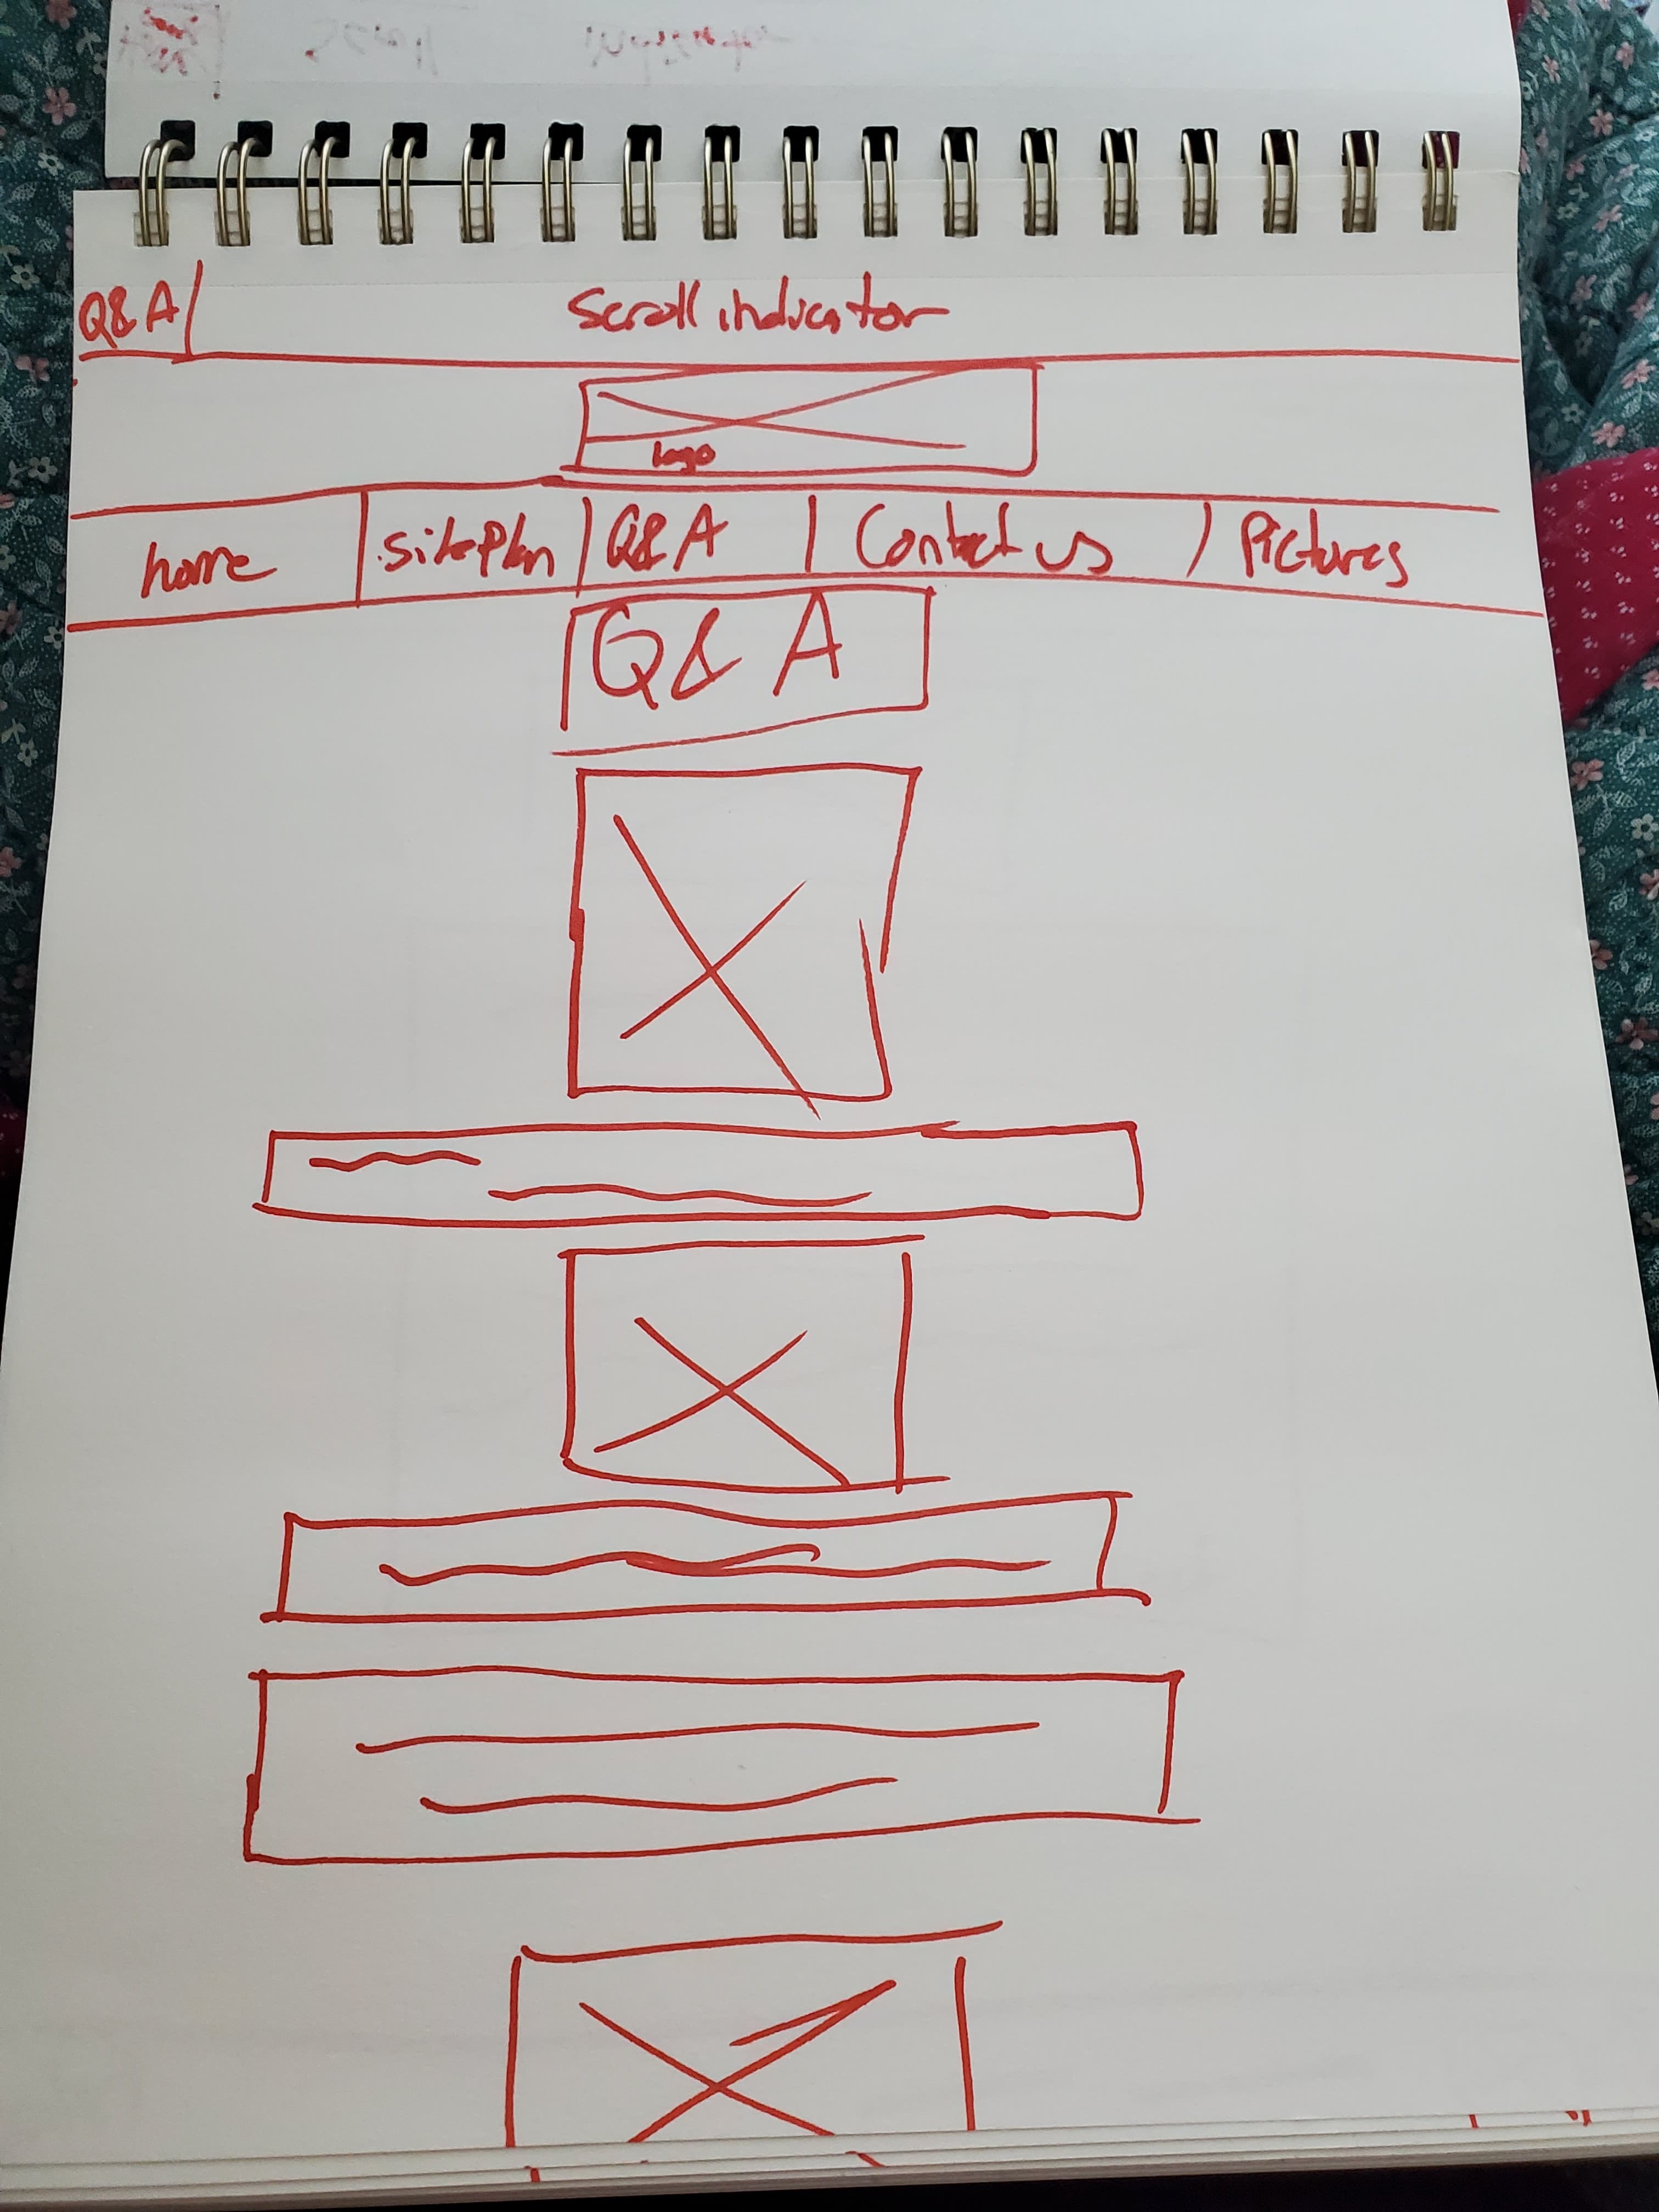 Q&A Scroll indicator
logo
home site Plan Q&A Contact us Pictures
Q& A